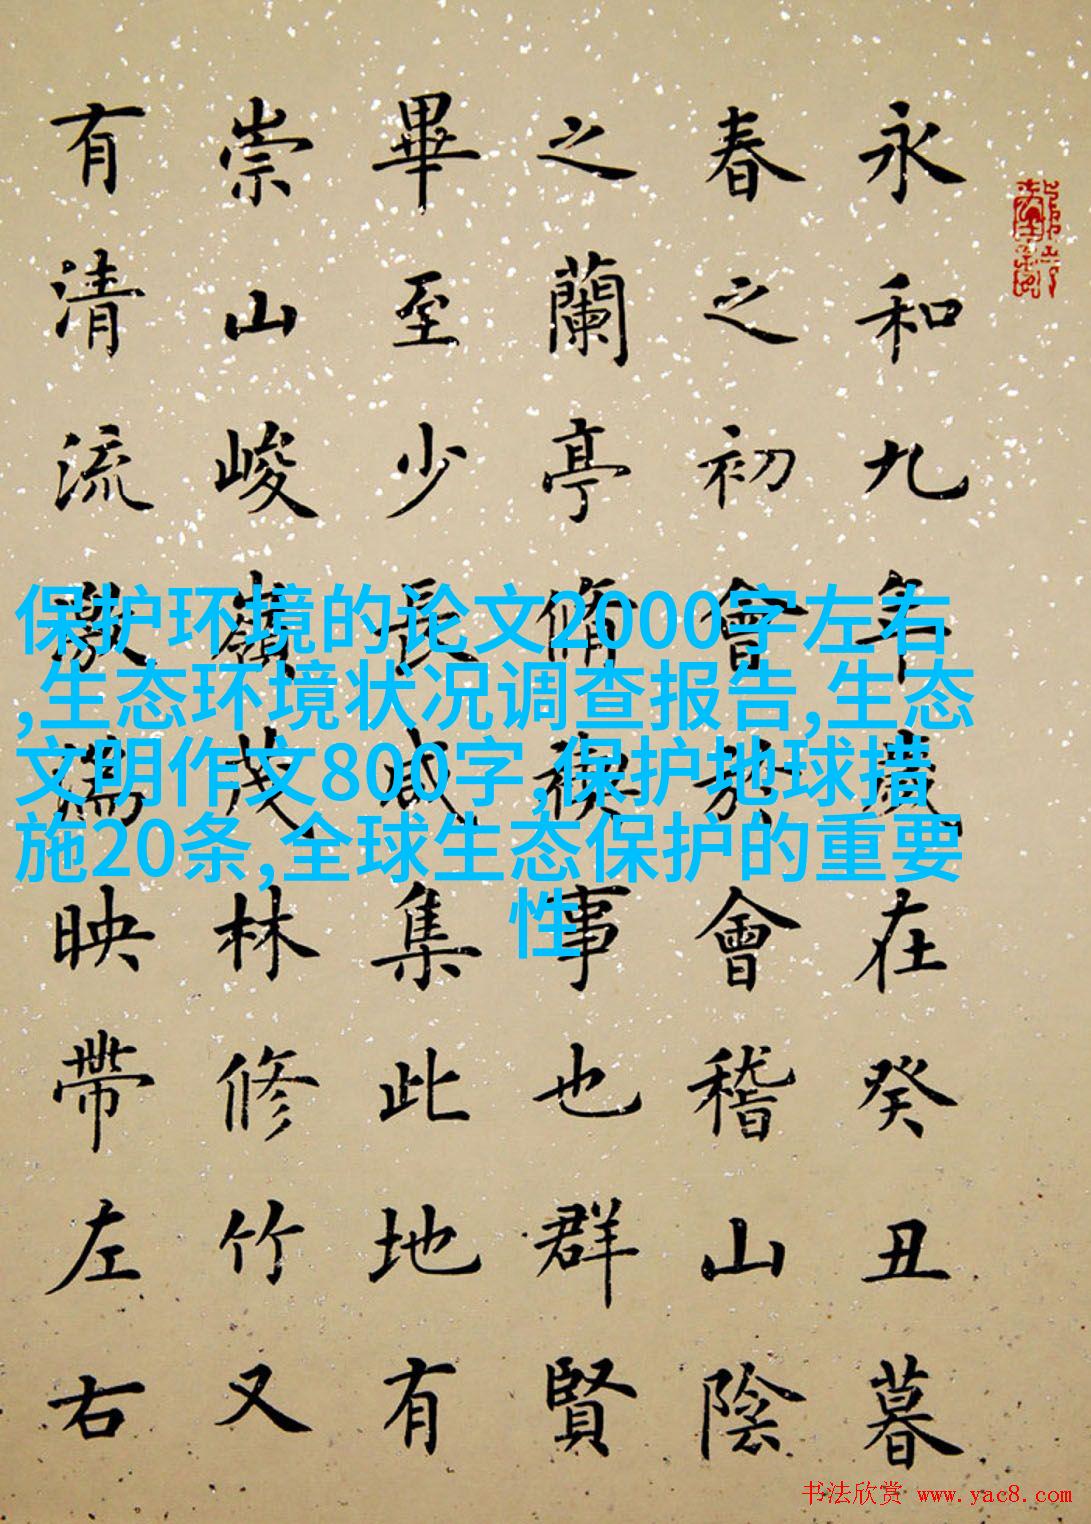 永和九年歲在癸丑暮
春之初會於會稽山陰
之蘭亭脩禊事也群賢
畢至少長咸集此地有
崇山峻嶺茂林修竹又
有清流激湍映帶左右
保护环境的论文2000字左右
,生态环境状况调查报告,生态
文明作文800字,保护地球措
施20条,全球生态保护的重要
性
书法欣赏 www.yac8.com